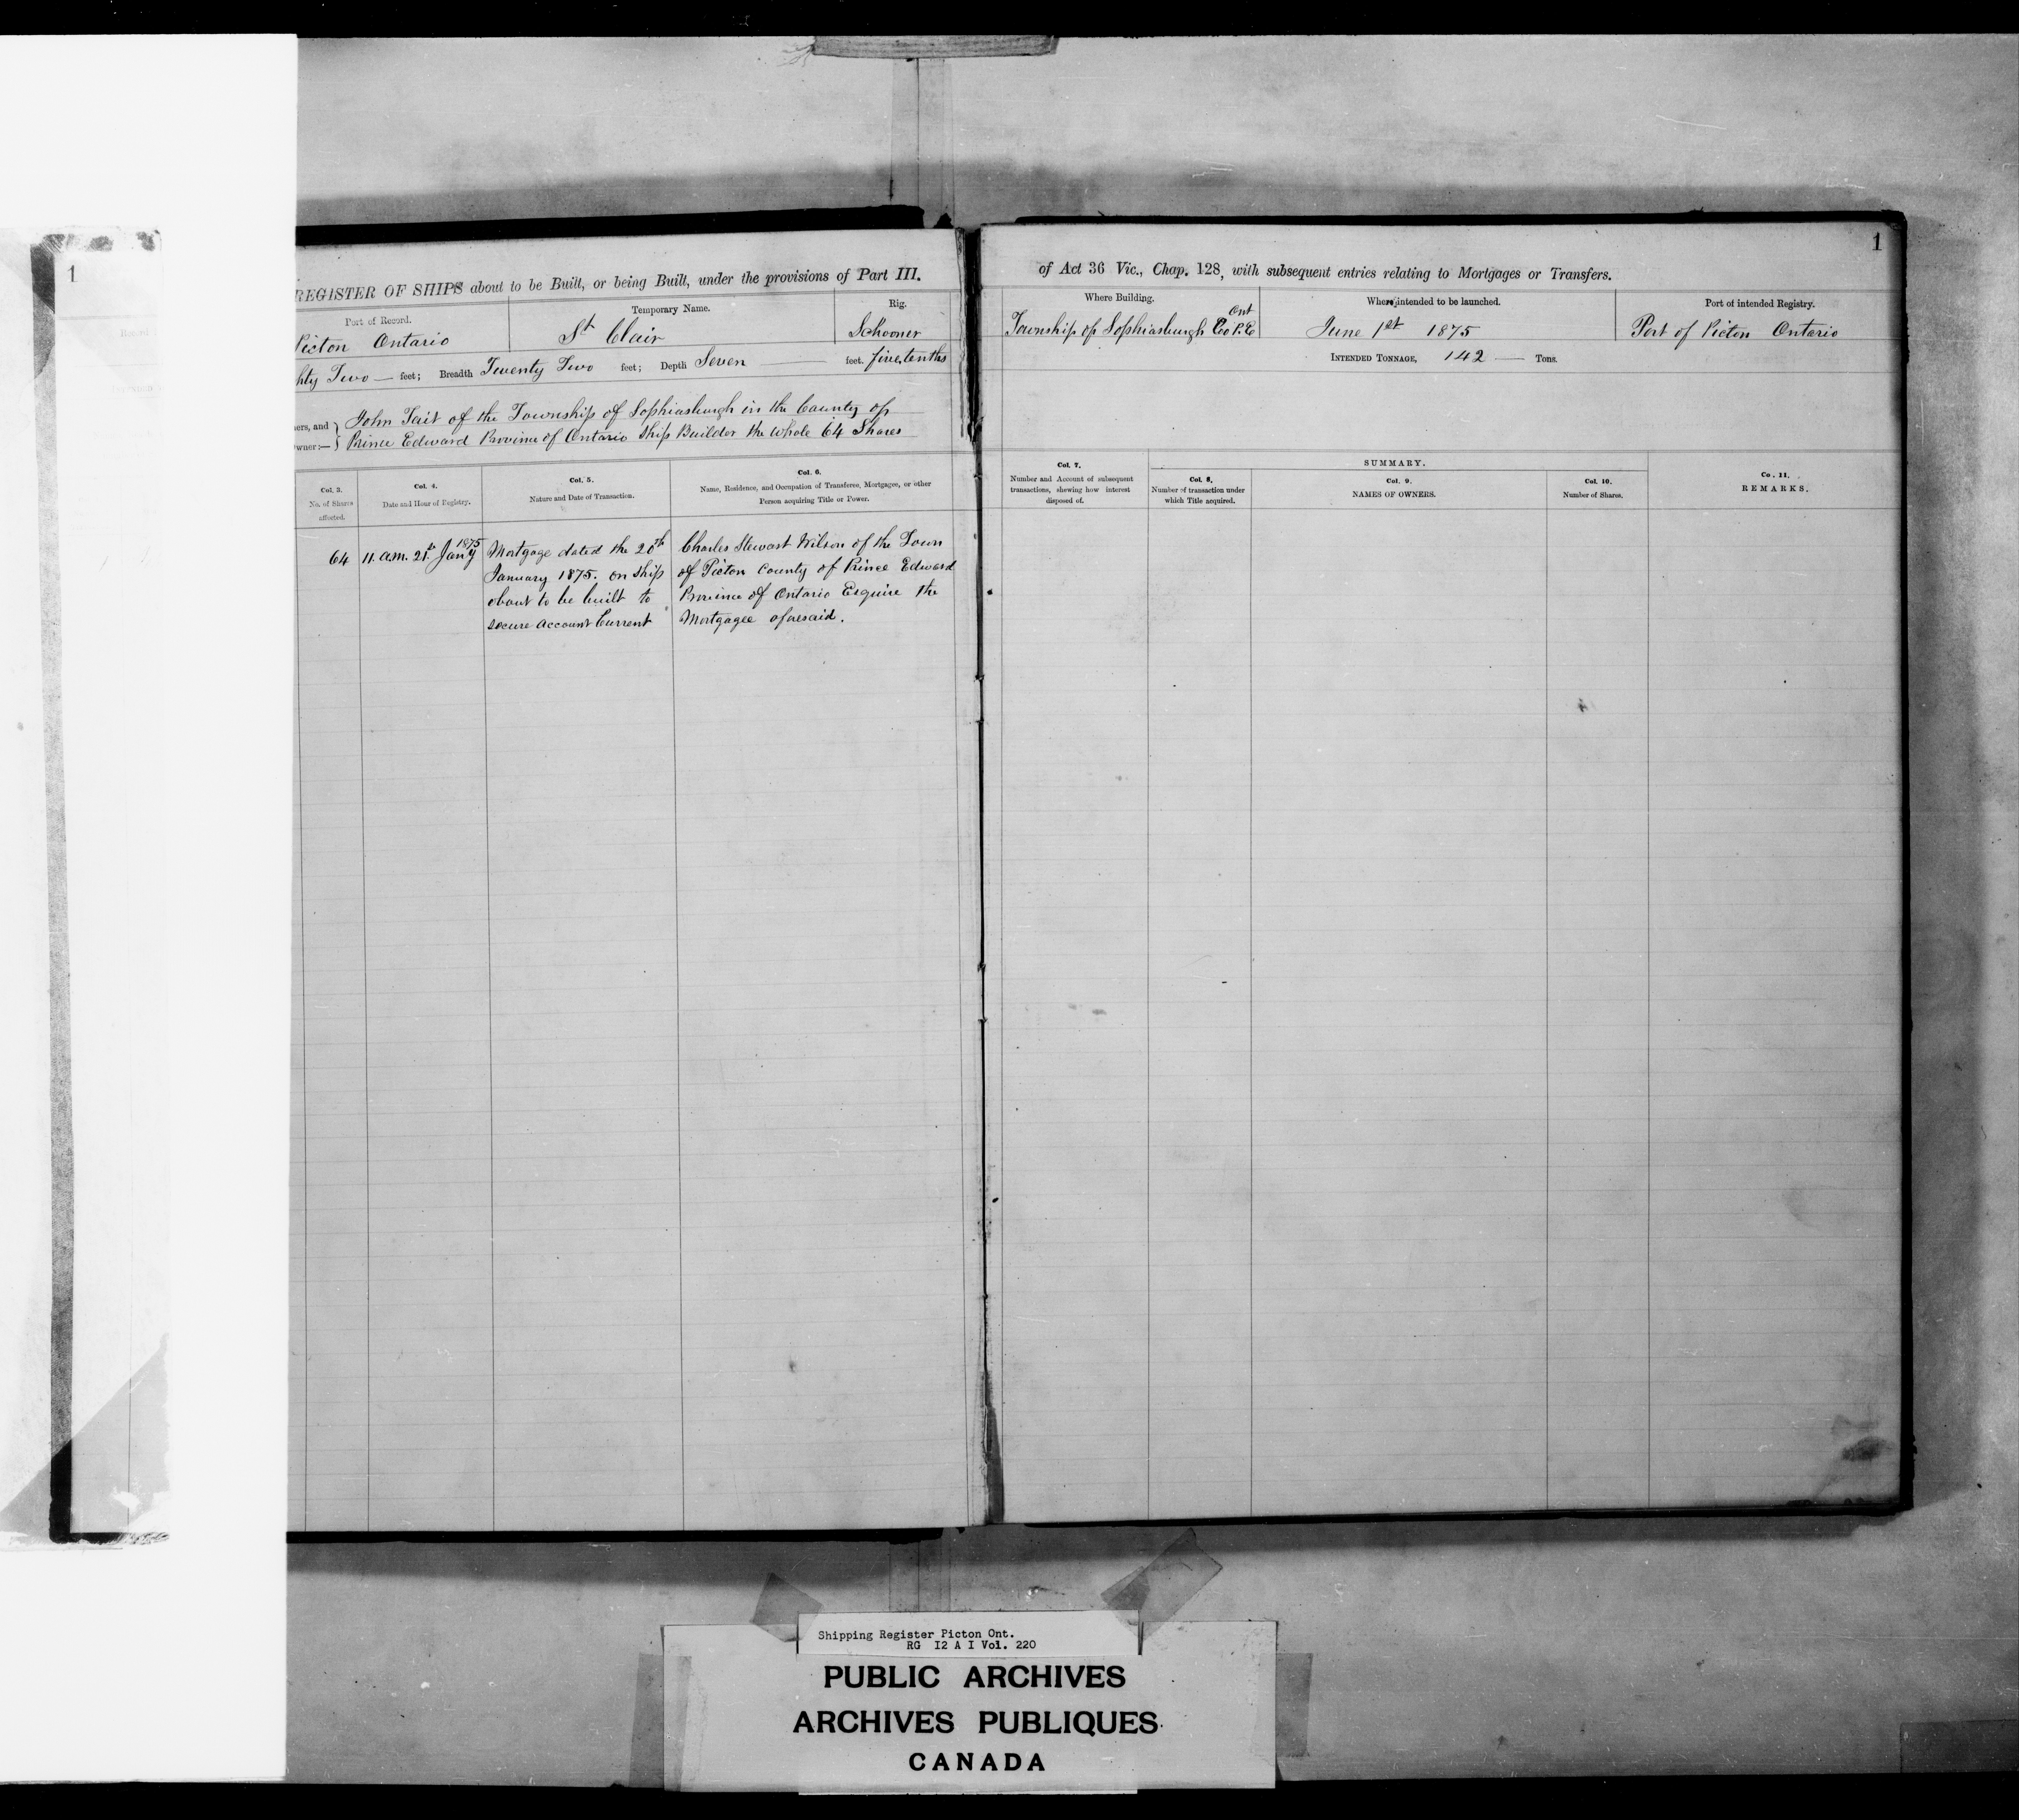 1
REGISTER OF SHIPS about to be Built, or being Built, under the provisions of Part III.
Port of Record.
Temporary Name.
Rig.
Picton Ontario
St Clair
Schooner
hty Two — feet; Breadth Twenty Two feet; Depth Seven — feet. five tenths
ers, and John Tait of the Township of Sophiasburgh in the County of
wner:— Prince Edward Province of Ontario Ship Builder the whole 64 Shares
Col. 3.
No. of Shares
affected.
Col. 4.
Date and Hour of Registry.
Col. 5.
Nature and Date of Transaction.
Col. 6.
Name, Residence, and Occupation of Transferee, Mortgagee, or other
Person acquiring Title or Power.
64
1875
11. a.m. 21st Jany
Mortgage dated the 20th
January 1875. on ship
about to be built to
secure Account Current
Charles Stewart Wilson of the Town
of Picton County of Prince Edward
Province of Ontario Esquire the
Mortgagee aforesaid.
1
of Act 36 Vic., Chap. 128, with subsequent entries relating to Mortgages or Transfers.
Where Building.
When intended to be launched.
Port of intended Registry.
Ont
Township of Sophiasburgh Co P.E
June 1st 1875
Port of Picton Ontario
INTENDED TONNAGE, 142 — Tons.
Col. 7.
Number and Account of subsequent
transactions, shewing how interest
disposed of.
SUMMARY.
Col. 8.
Number of transaction under
which Title acquired.
Col. 9.
NAMES OF OWNERS.
Col. 10.
Number of Shares.
Co. 11.
REMARKS.
Shipping Register Picton Ont.
RG I2 A I Vol. 220
PUBLIC ARCHIVES
ARCHIVES PUBLIQUES
CANADA